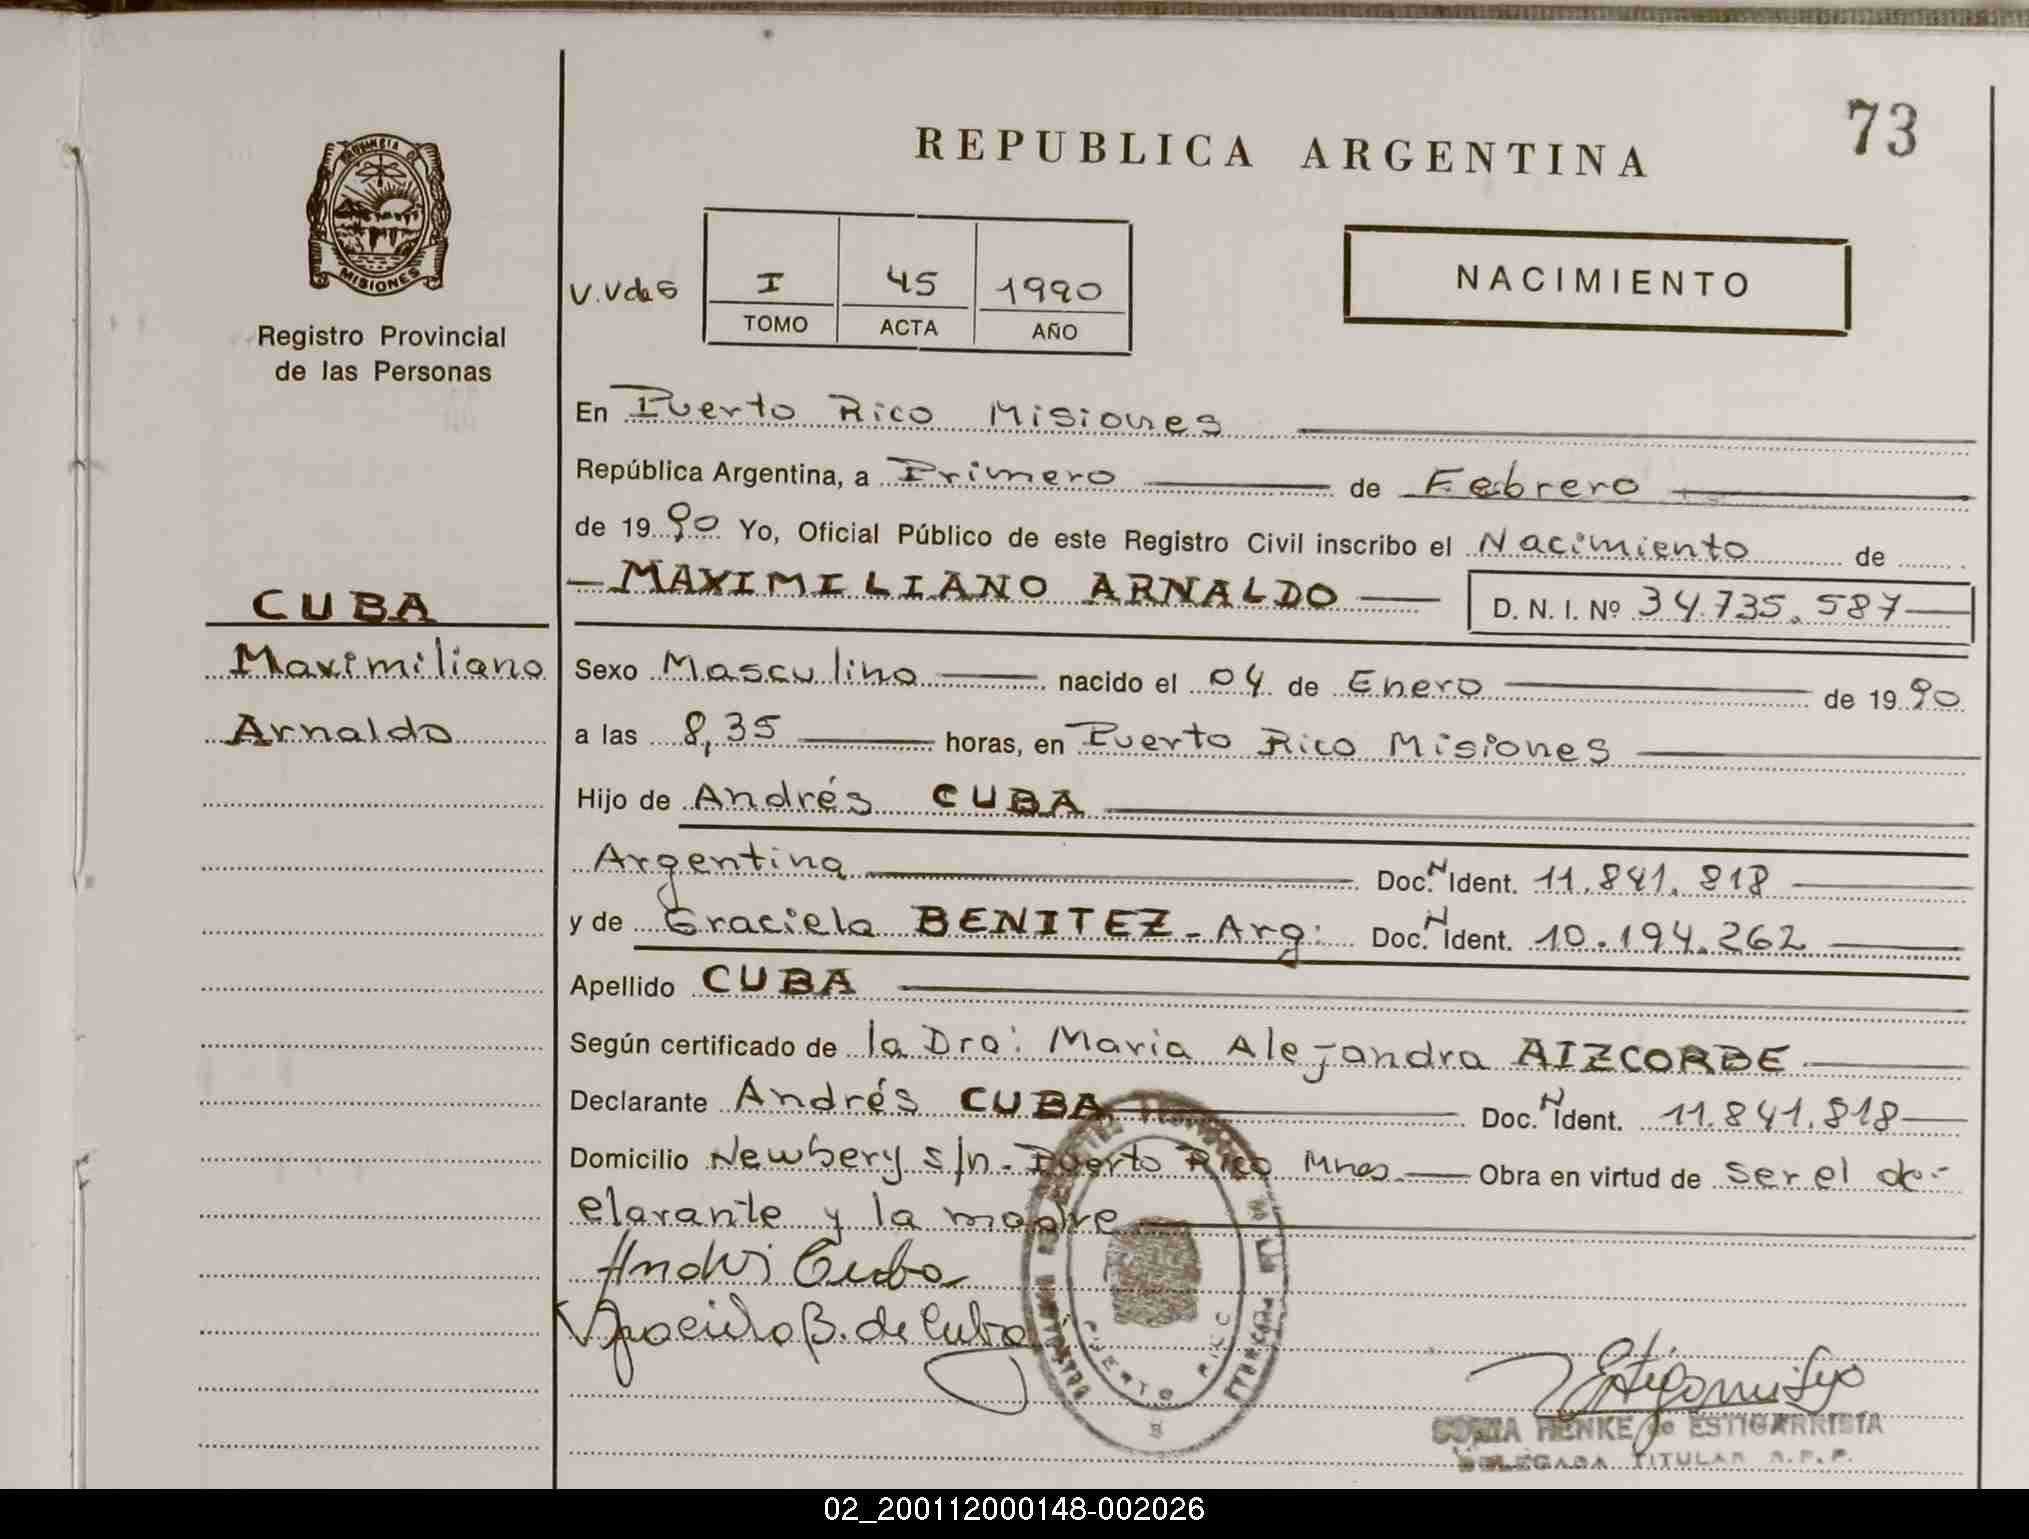 REPUBLICA ARGENTINA
73
PROVINCIA DE
MISIONES
Registro Provincial
de las Personas
V.V de S
I 45 1990
TOMO ACTA AÑO
NACIMIENTO
En Puerto Rico Misiones
República Argentina, a Primero de Febrero
de 1990 Yo, Oficial Público de este Registro Civil inscribo el Nacimiento de
MAXIMILIANO ARNALDO D. N. I. Nº 34.735.587
CUBA
Maximiliano
Arnaldo
Sexo Masculino nacido el 04 de Enero de 1990
a las 8,35 horas, en Puerto Rico Misiones
Hijo de Andrés CUBA
Argentina Doc. N Ident. 11.841.818
y de Graciela BENITEZ - Arg: Doc. N Ident. 10.194.262
Apellido CUBA
Según certificado de la Dra: Maria Alejandra AIZCORBE
Declarante Andrés CUBA Doc. N Ident. 11.841.818
Domicilio Newbery s/n - Puerto Rico Mnes. Obra en virtud de ser el de-
clarante y la madre
Andrés Cuba
Graciela B. de Cuba
PUERTO RICO
SONIA HENKE de ESTIGARRIBIA
DELEGADA TITULAR R.P.P.
02_200112000148-002026